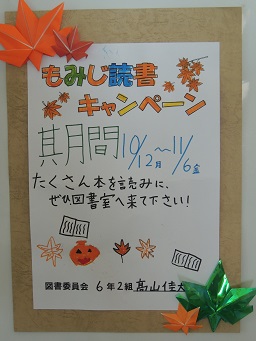 もみじ読書
キャンペーン
其月間 10/12月〜11/6金
たくさん本を読みに、
ぜひ図書室へ来て下さい!
図書委員会 6年2組 高山佳大